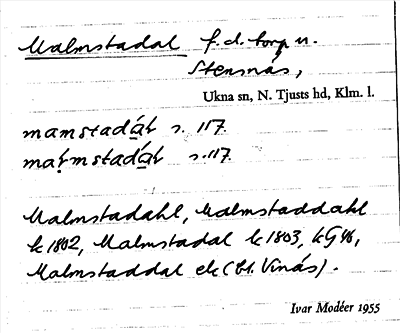 Malmstadal f.d. torp u.
Stensnäs,
Ukna sn, N. Tjusts hd, Klm. l.
mamstadáḷ s. 117.
maḷmstadáḷ s. 117.
Malmstadahl, Malmstaddahl
k 1802, Malmstadal k 1803, kG 46,
Malmstaddal ek (bl. Vinäs).
Ivar Modéer 1955